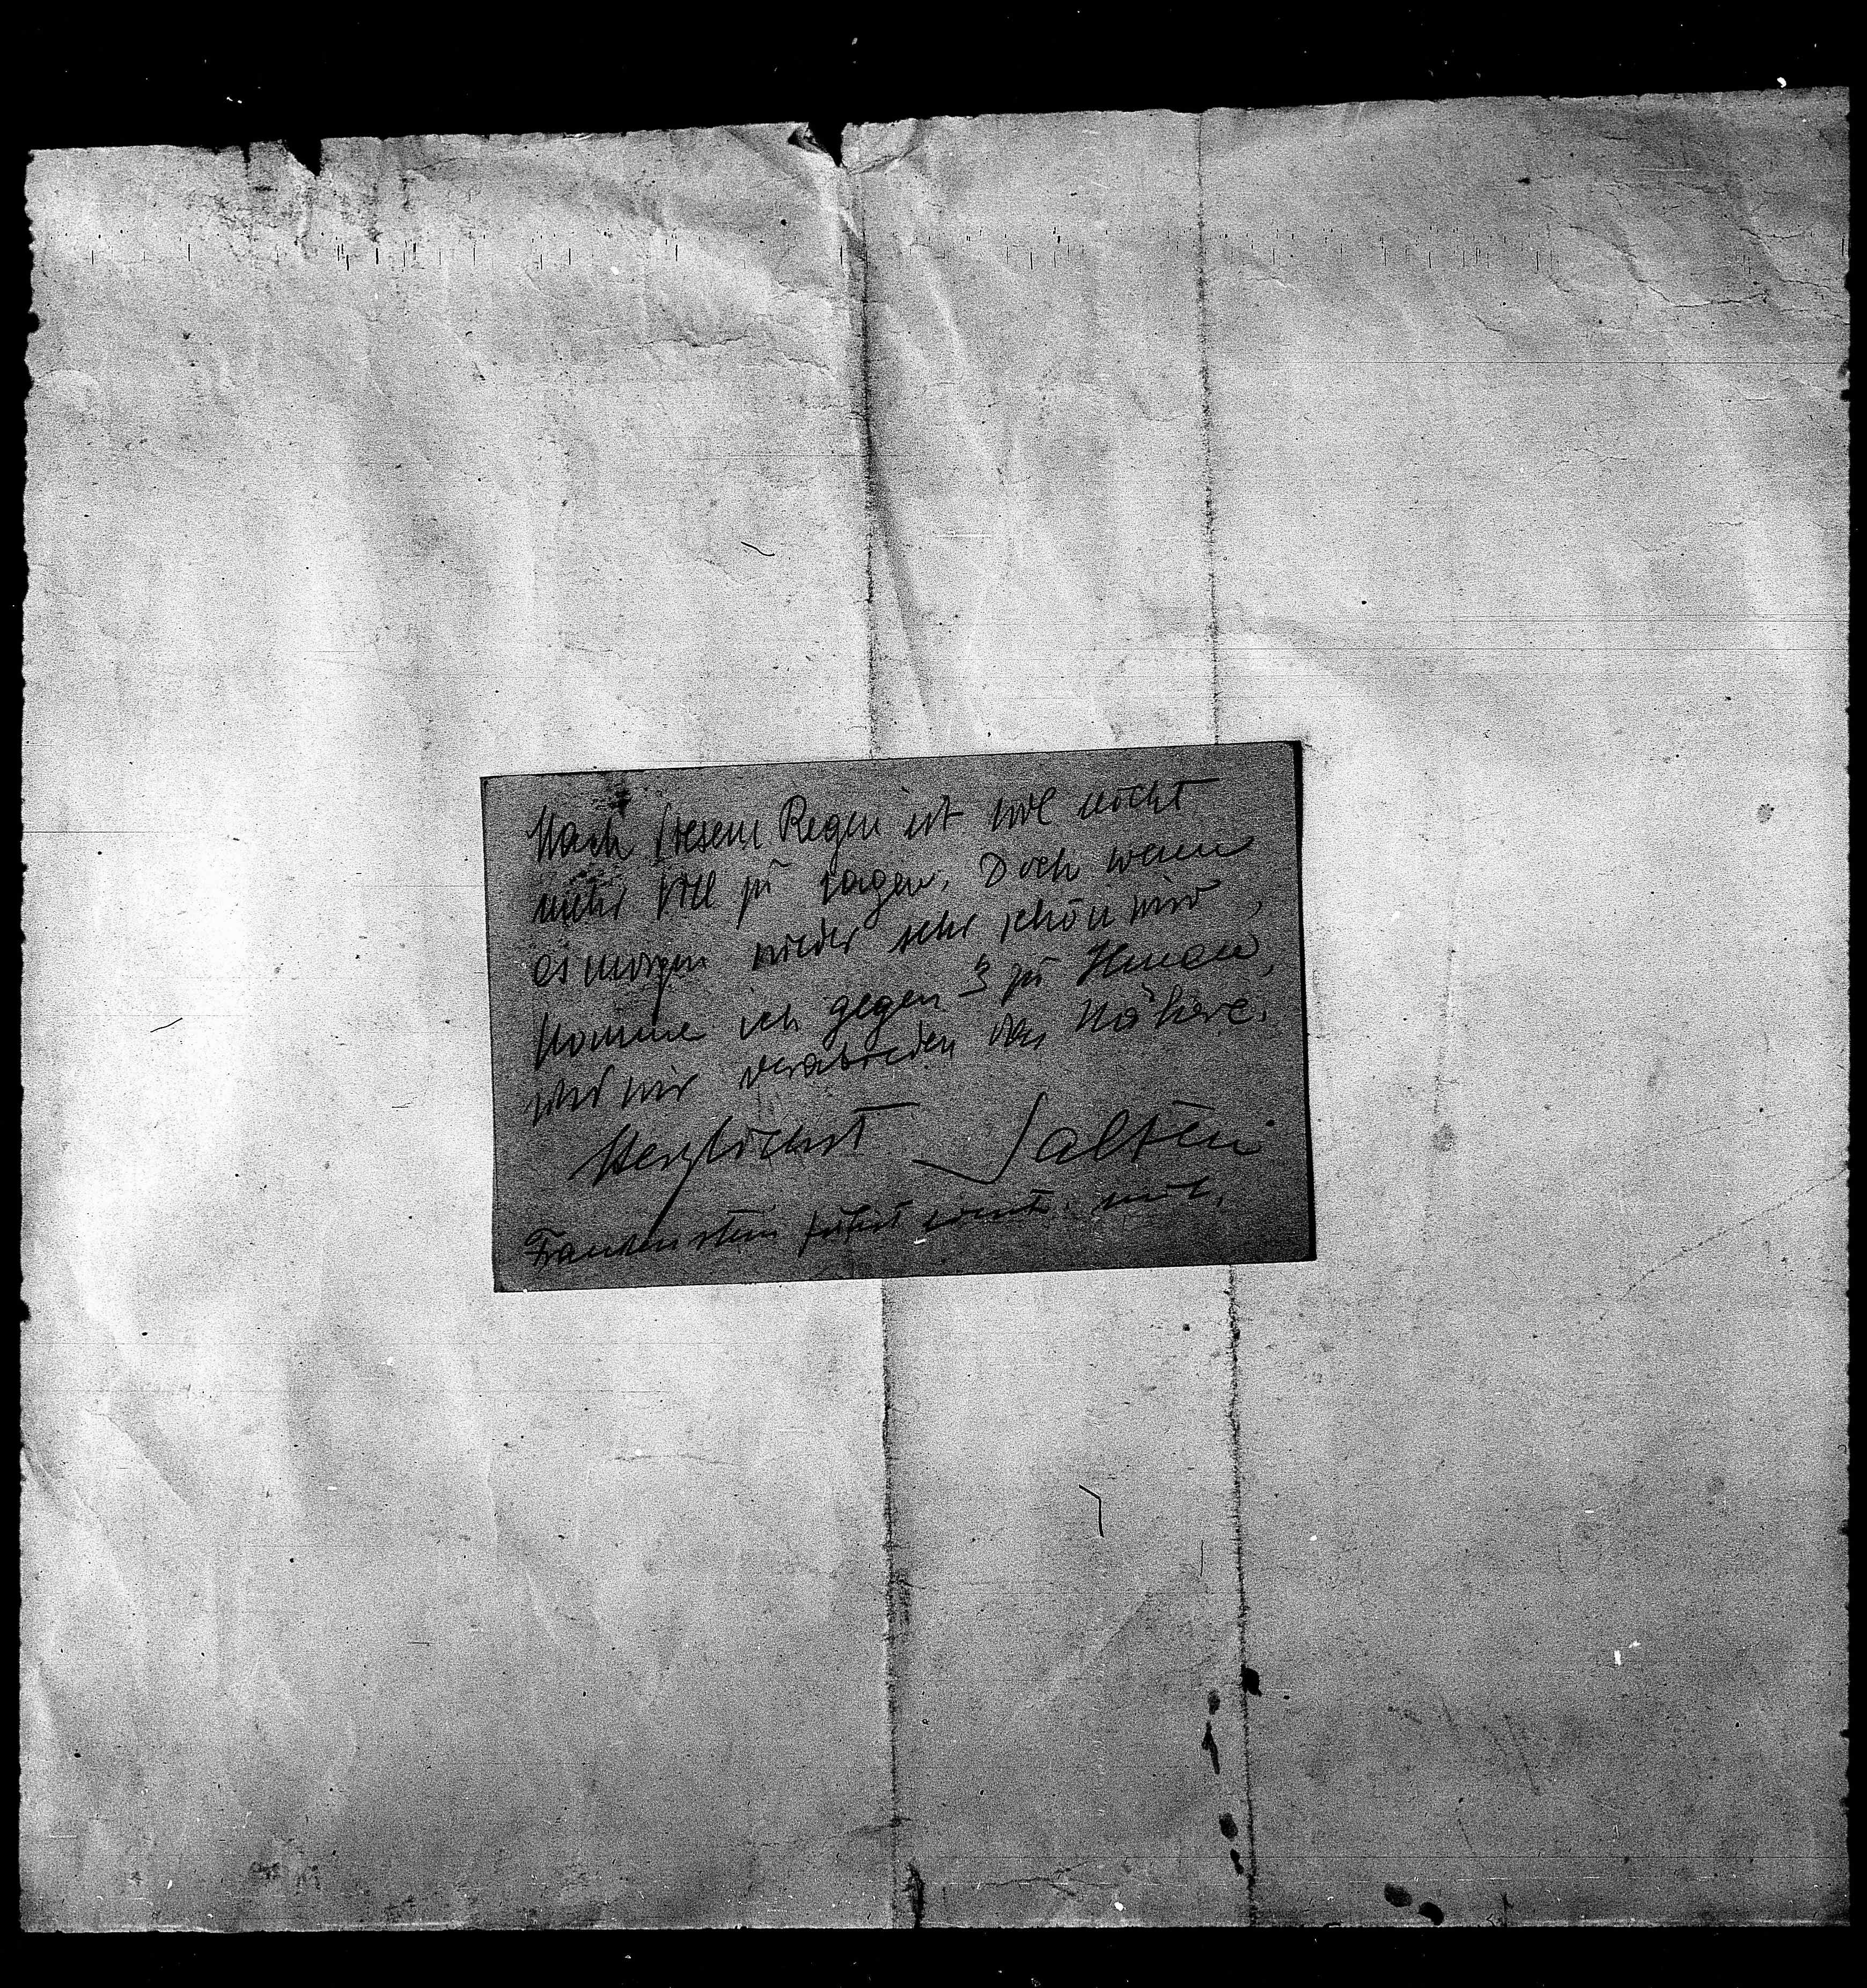 Nach diesem Regen ist wol nicht
mehr viel zu sagen. Doch wenn
es morgen wieder sehr schön wird,
komme ich gegen 3 zu Ihnen,
und wir verabreden das Nähere.
Herzlichst Salten
Frankenstein fährt event. mit.